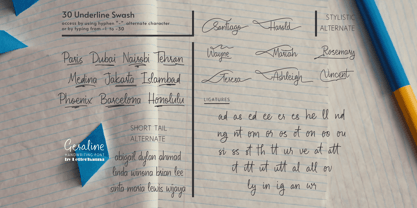 30 Underline Swash
access by using hyphen "-", alternate character
or by typing from -1 to -30
Paris Dubai Nairobi Tehran
Medina Jakarta Islambad
Phoenix Barcelona Honolulu
Geraline
HANDWRITING FONT
by Letterhanna
SHORT TAIL
ALTERNATE
abigail dylan ahmad
linda winona brian lee
sinta maria lewis wijaya
Santiago Harold
STYLISTIC
ALTERNATE
Wayne Mariah Rosemary
Teresa Ashleigh Vincent
LIGATURES
ad as ed ee er es he ll nd
ng nt om or os ot on oo ou
si ss st th tt us ve at att
it itt ut utt al all ov
ly in ig an wr